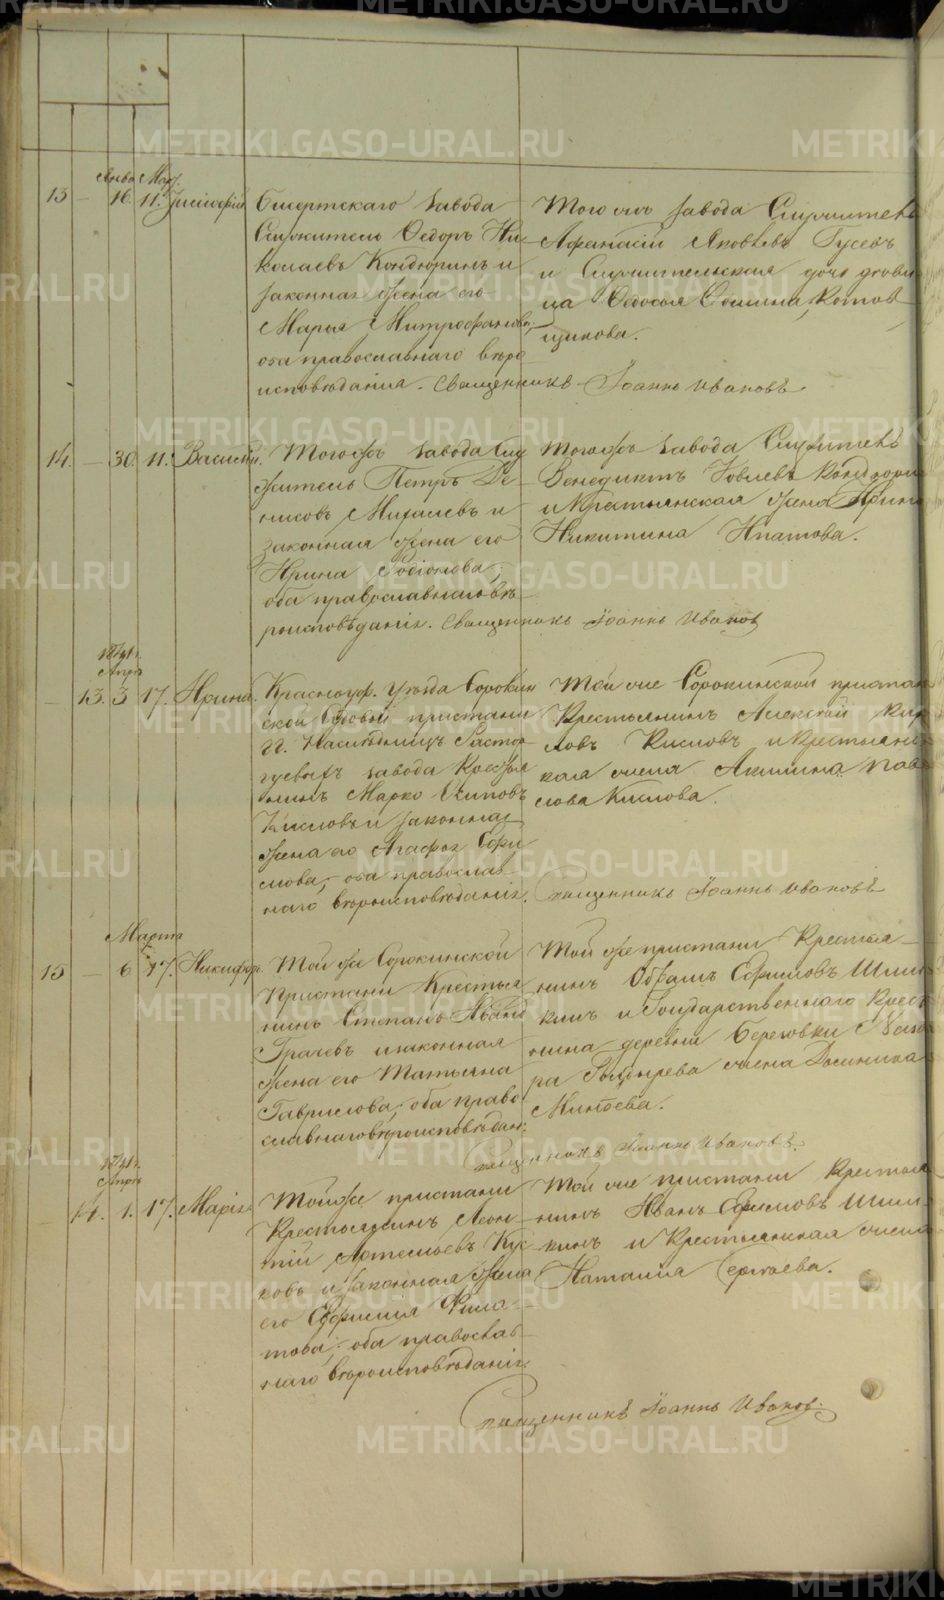 METRIKI.GASO-URAL.RU
Янва Мар.
13 — 16. 11.
Бисертскаго завода
Служитель Ѳедоръ Ни-
колаевъ Кондюринъ и
законная жена его
Марья Митрофанова,
оба православнаго веро
исповѣданія. Священникъ Іоаннъ Ивановъ
Того же завода Служитель
Афанасій Яковлевъ Гусевъ
и Служительская дочь дѣви
ца Ѳедосья Котов
щикова.
14. — 30. 11. Василій.
Тогожъ завода Слу
житель Петръ Де-
нисовъ Михалевъ и
законная жена его
Ирина Родіонова,
оба православнаго вѣ-
роисповѣданія. Священникъ Іоаннъ Ивановъ
Тогожъ завода Служитель
Венедиктъ Кондюрин
и Крестьянская жена Ирина
Никитина Ипатова.
1841г.
Апрѣ
— 13. 3 17. Ирина.
Красноуф. Уѣзда Сорокин
ской Судовой пристани
Гг. Наслѣдницъ Растор
гуевыхъ завода Крестья
нинъ Марко Осиповъ
Кисловъ и законная
жена его Агафья Ефи
мова, оба православ
наго вѣроисповѣданія.
Той же Сорокинской пристани
Крестьянинъ Алексѣй Кир
ловъ Кисловъ и крестьянс
кая жена Акилина Пав
лова Кислова.
Священникъ Іоаннъ Ивановъ
Марта
15 — 6 17. Никифор.
Той же Сорокинской
Пристани Крестья
нинъ Степанъ Иванов
Грачевъ и законная
жена его Татьяна
Гаврилова, оба право
славнаго вѣроисповѣдан.
Той же пристани Крестья-
нинъ Абрамъ Ефимовъ Шиш
кинъ и Государственнаго Крест
нина деревни Береговки
ра жена Доминика
Минѣева.
Священникъ Іоаннъ Ивановъ.
1841г.
Апрѣ
— 14. 1. 17. Марія.
Той же пристани
Крестьянинъ Леон-
тій Артемьевъ Кус
ковъ и законная жена
его Ефимія Фила-
това, оба православ-
наго вѣроисповѣданія.
Той же пристани Крестья
нинъ Иванъ Ефимовъ Шиш-
кинъ и Крестьянская жена
Наталія Сергѣева.
Священникъ Іоаннъ Ивановъ.